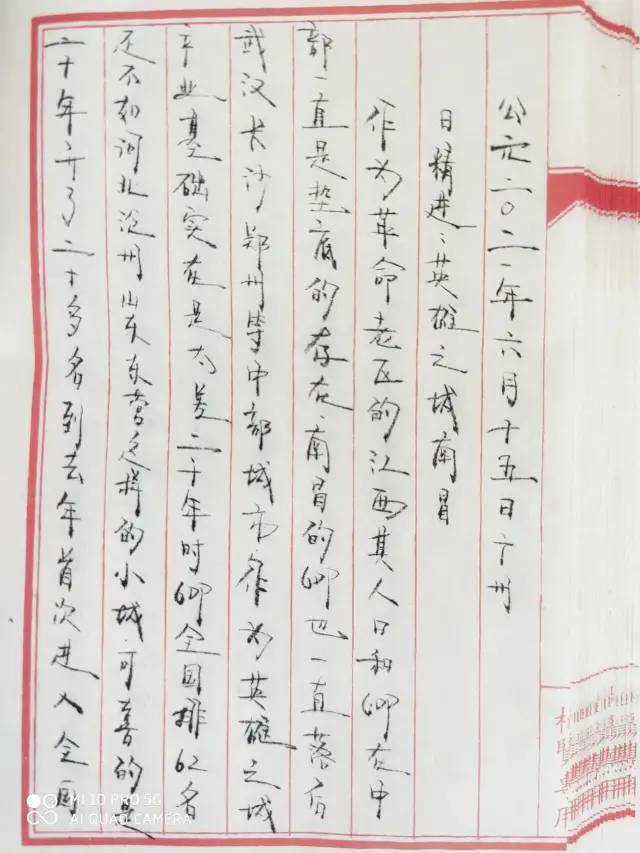 公元二〇二一年六月十五日广州
日精进：英雄之城南昌
作为革命老区的江西其人口和在中
部一直是垫底的存在、南昌的也一直落后
武汉长沙郑州等中部城市作为英雄之城
产业基础实在是太差二十年时全国排62名
还不如河北沧州山东东营这样的小城可喜的是
二十年升了二十多名到去年首次进入全国
MI 10 PRO 5G
AI QUAD CAMERA